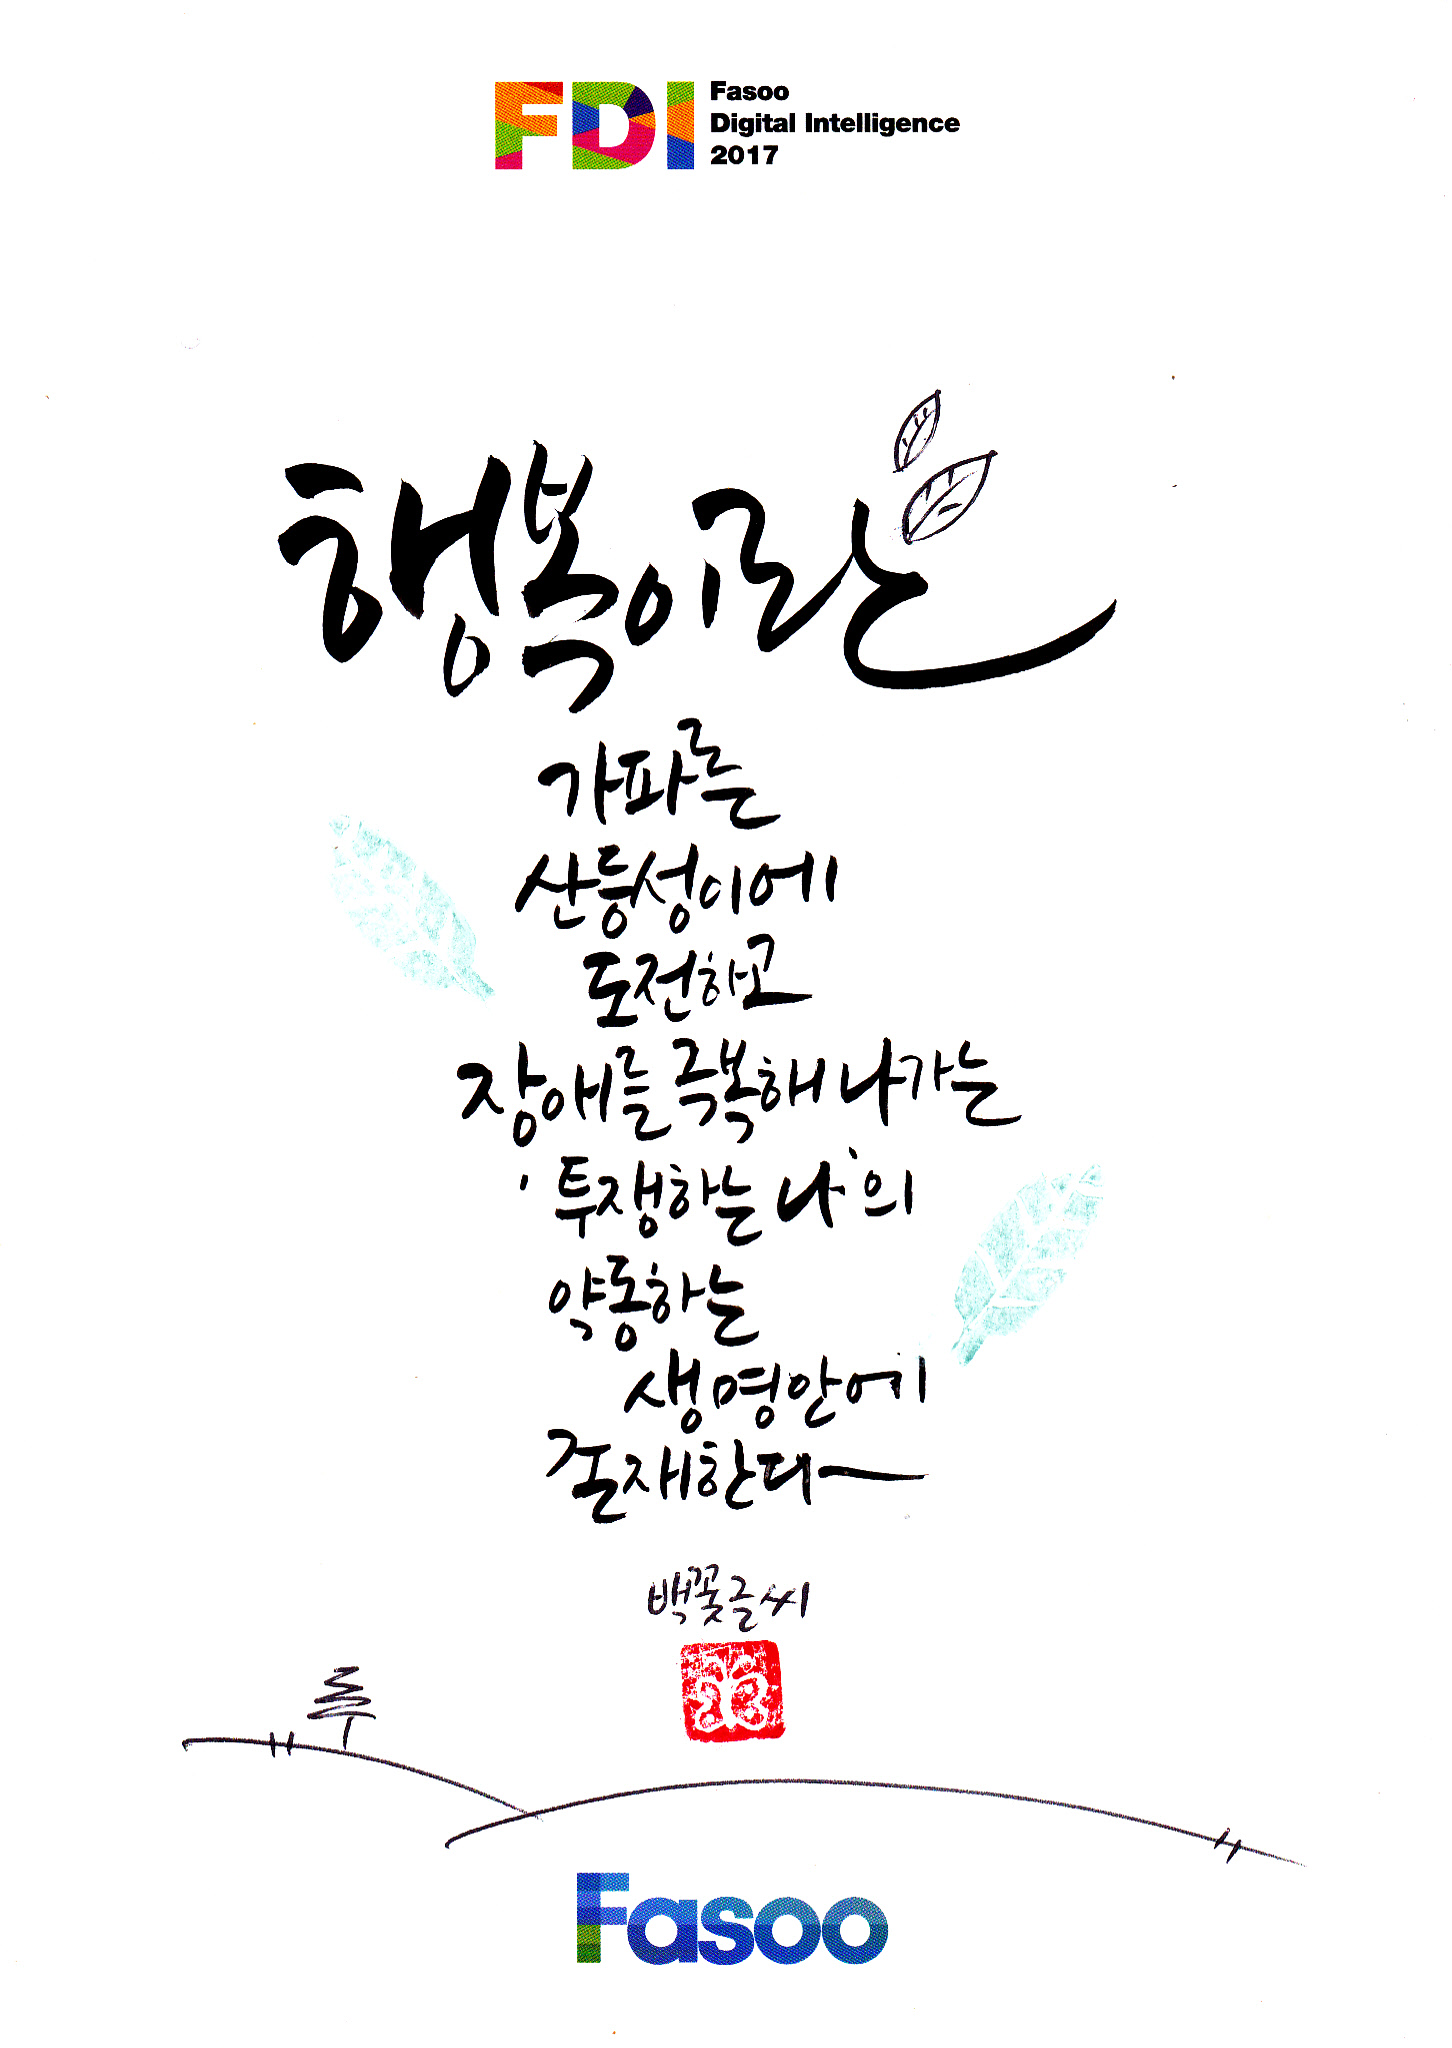 FDI
Fasoo
Digital Intelligence
2017
행복이란
가파른
산등성이에
도전하고
장애를 극복해 나가는
'투쟁하는 나'의
약동하는
생명안에
존재한다~
백꽃글씨
Fasoo